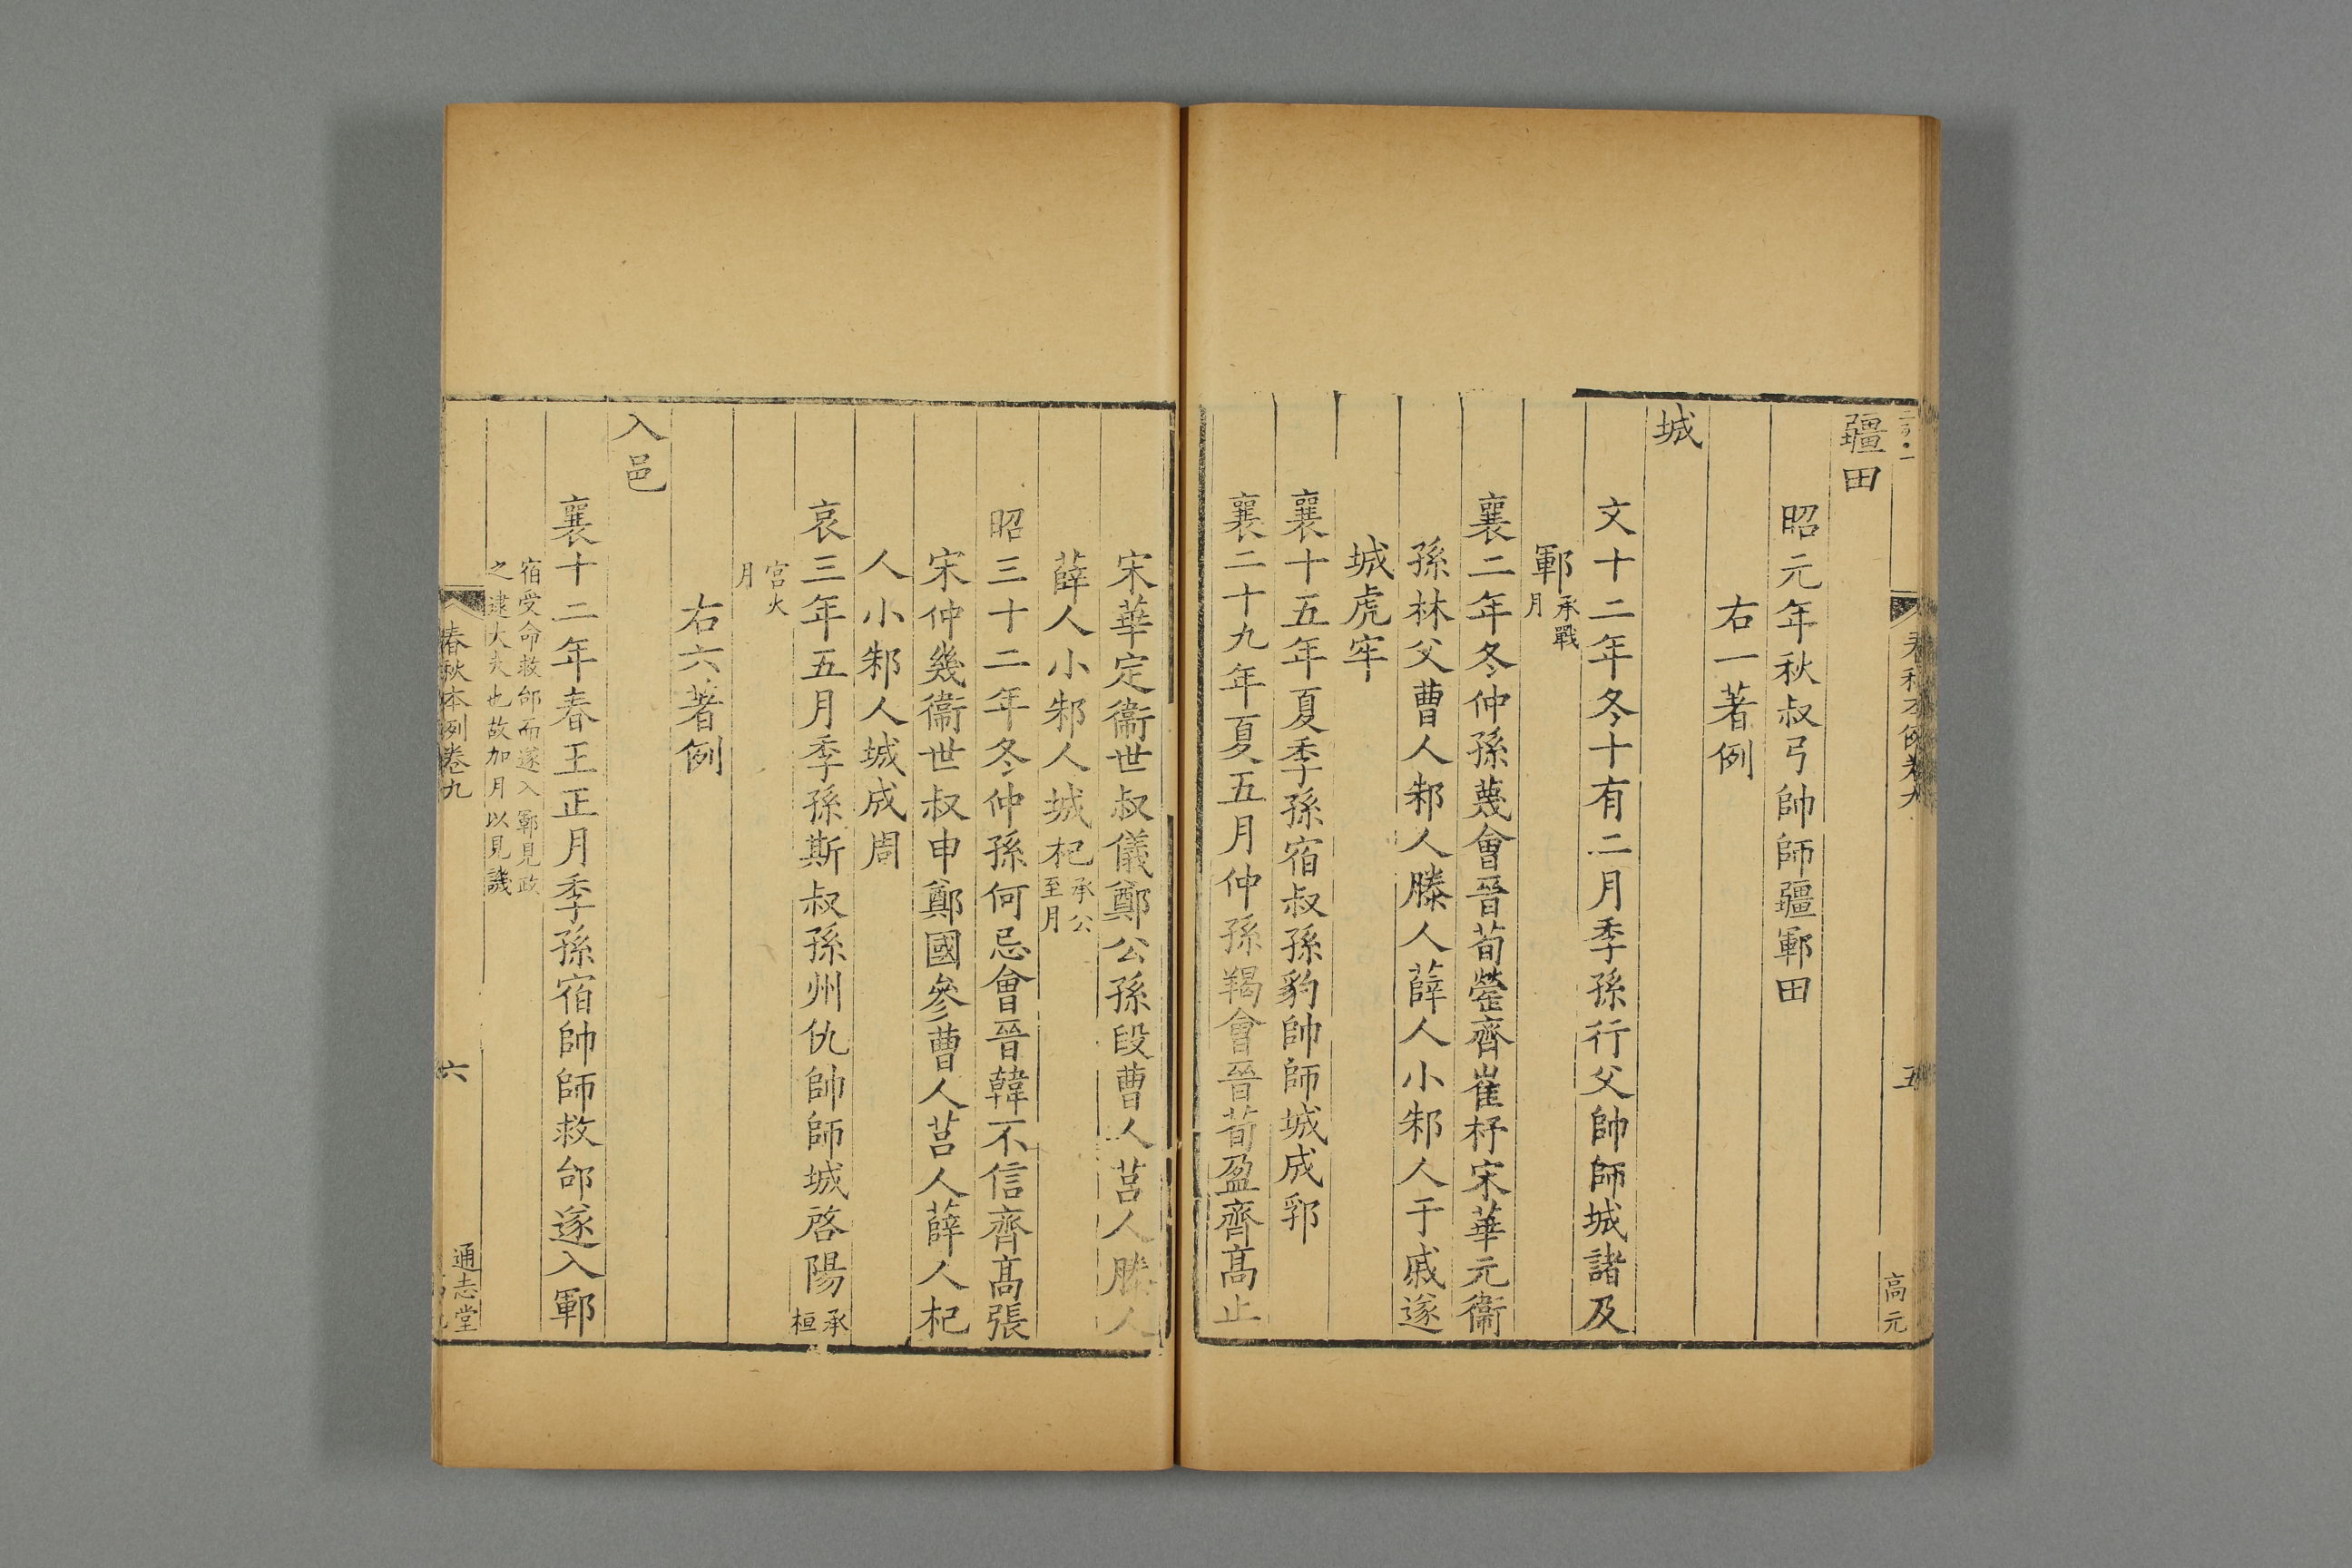 春秋本例卷九
五
高元
疆田
昭元年秋叔弓帥師疆鄆田
右一著例
城
文十二年冬十有二月季孫行父帥師城諸及
鄆承戰月
襄二年冬仲孫蔑會晉荀罃齊崔杼宋華元衞
孫林父曹人邾人滕人薛人小邾人于戚遂
城虎牢
襄十五年夏季孫宿叔孫豹帥師城成郛
襄二十九年夏五月仲孫羯會晉荀盈齊高止
宋華定衞世叔儀鄭公孫段曹人莒人滕人
薛人小邾人城杞承公至月
昭三十二年冬仲孫何忌會晉韓不信齊高張
宋仲幾衞世叔申鄭國參曹人莒人薛人杞
人小邾人城成周
哀三年五月季孫斯叔孫州仇帥師城啓陽承桓
宮火月
右六著例
入邑
襄十二年春王正月季孫宿帥師救邰遂入鄆
宿受命救邰而遂入鄆見政
之逮大夫也故加月以見譏
春秋本例卷九
六
通志堂